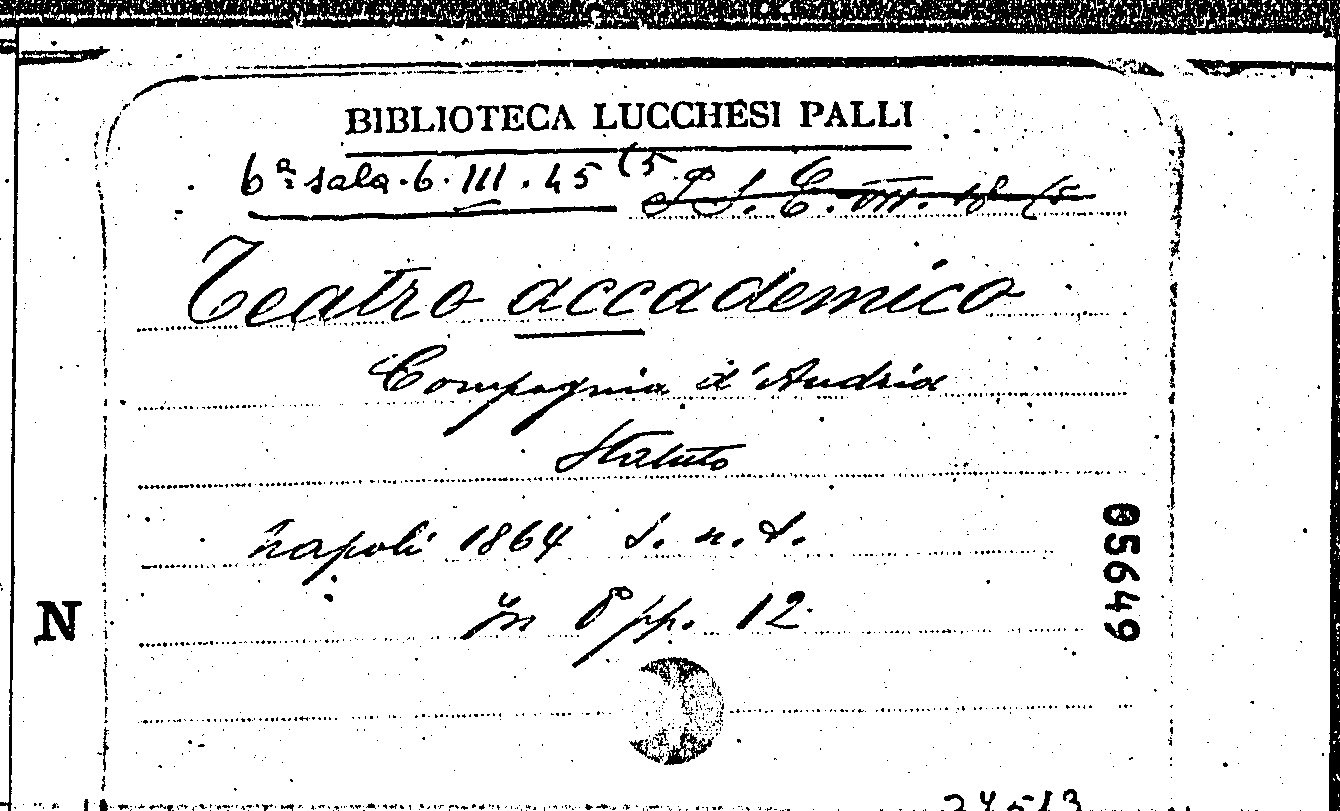 BIBLIOTECA LUCCHESI PALLI
6ª sala. 6. III. 45 (5
Teatro accademico
Compagnia d'Andria
Statuto
Napoli 1864 s. n. t.
In 8° pp. 12
05649
N
24513